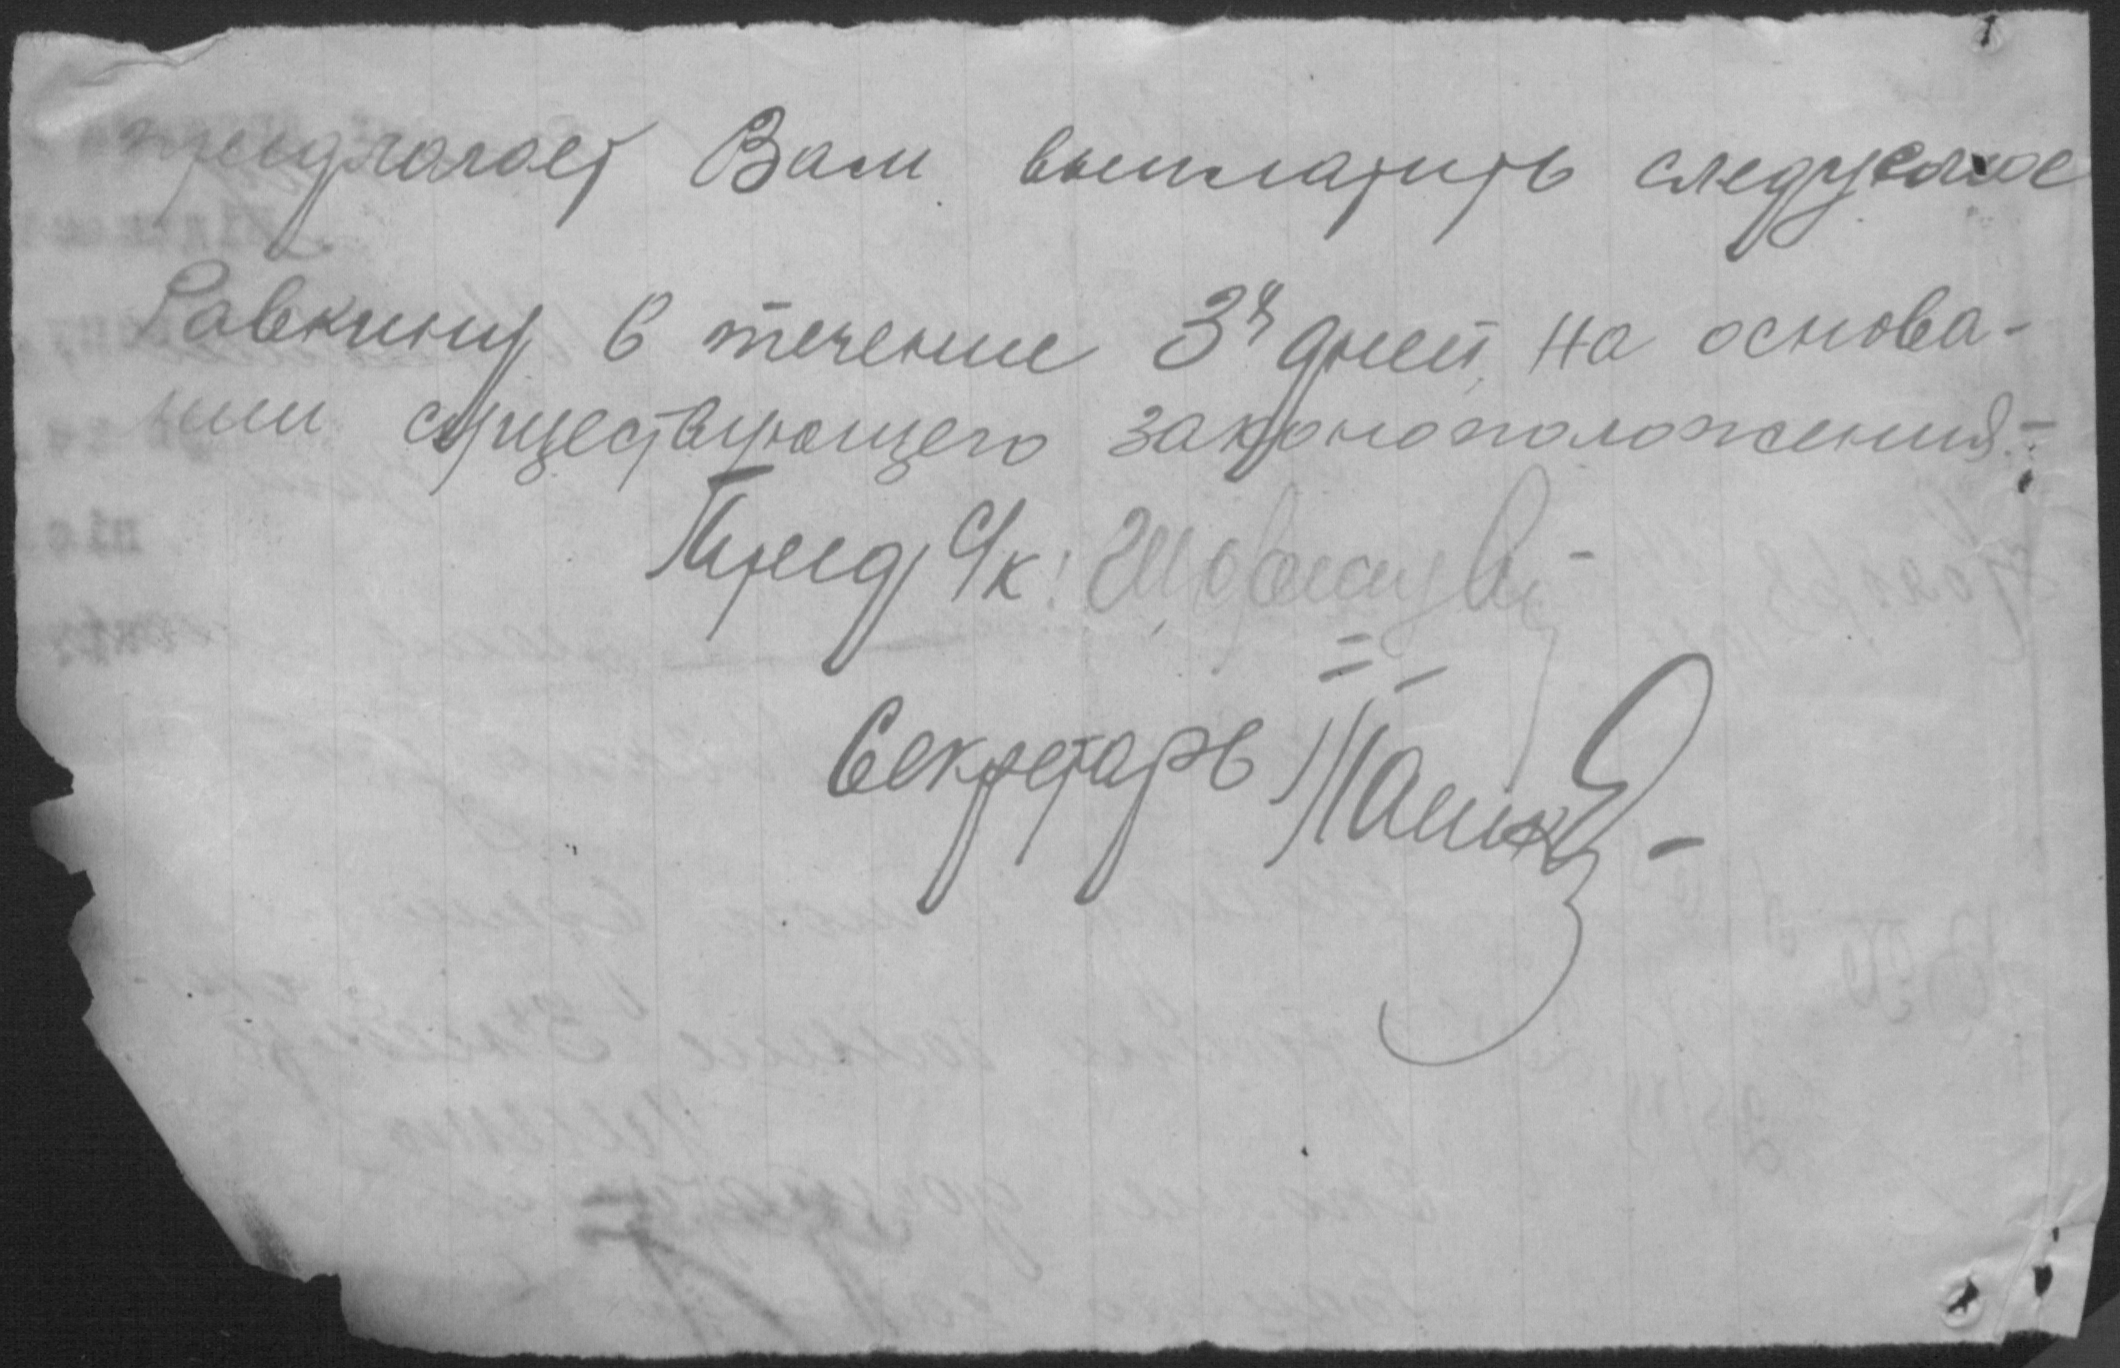 предлагает Вам выплатить следуемое
Равкину в течение 3х дней, на основа-
нии существующего законоположения.-
Пред Ук:
Секретарь